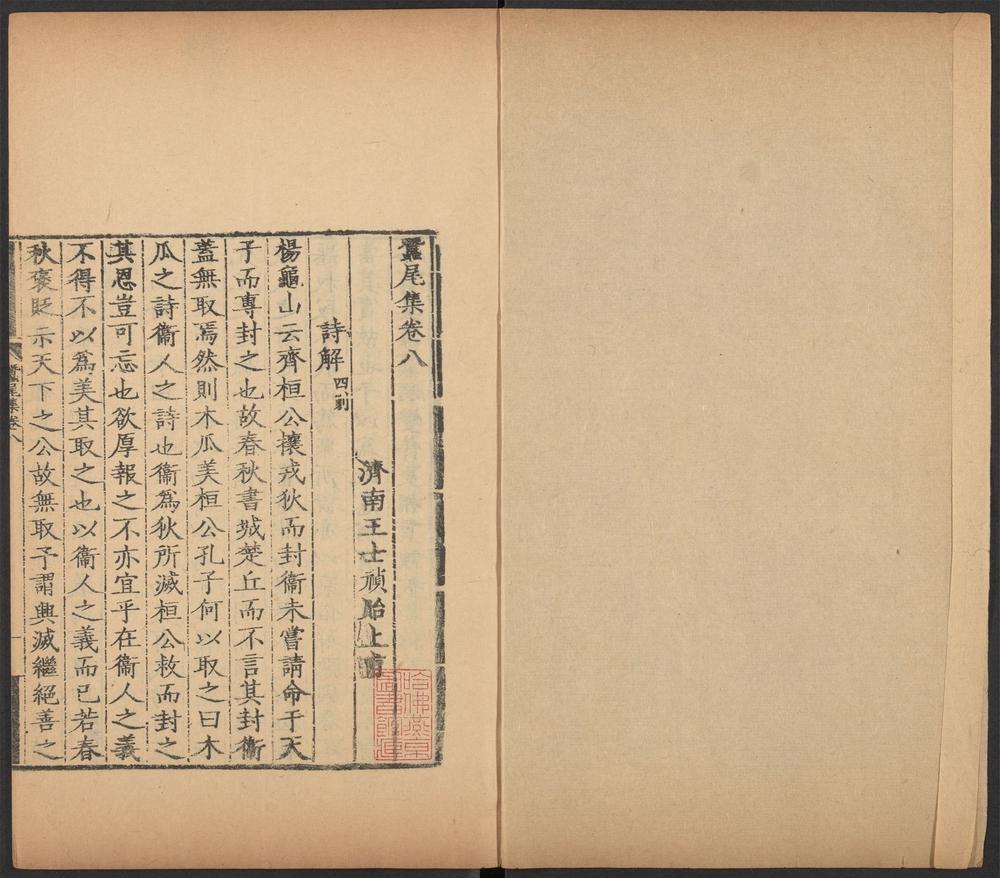 蠶尾集卷八
濟南王士禎貽上甫
詩解四則
楊龜山云齊桓公攘戎狄而封衞未嘗請命于天
子而專封之也故春秋書城楚丘而不言其封衞
蓋無取焉然則木瓜美桓公孔子何以取之曰木
瓜之詩衞人之詩也衞爲狄所滅桓公救而封之
其恩豈可忘也欲厚報之不亦宜乎在衞人之義
不得不以爲美其取之也以衞人之義而已若春
秋褒貶示天下之公故無取予謂興滅繼絕善之
蠶尾集卷八
哈佛燕京
圖書館